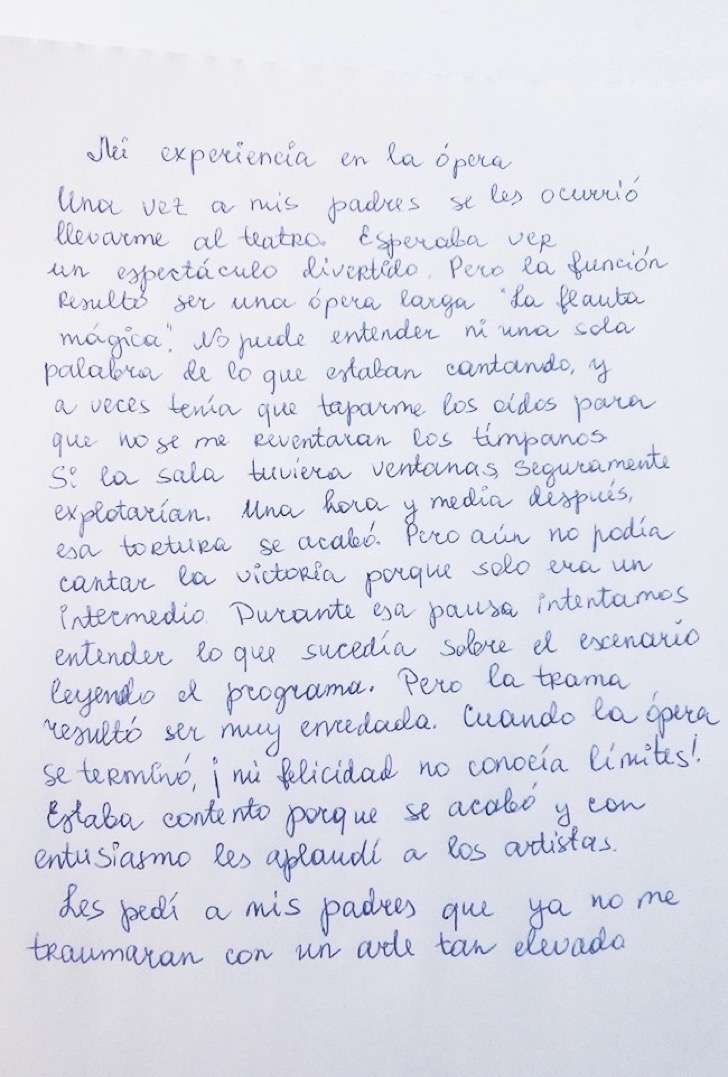 Mi experiencia en la ópera
Una vez a mis padres se les ocurrió
llevarme al teatro. Esperaba ver
un espectáculo divertido. Pero la función
resultó ser una ópera larga "La flauta
mágica". No pude entender ni una sola
palabra de lo que estaban cantando, y
a veces tenía que taparme los oídos para
que no se me reventaran los tímpanos
Si la sala tuviera ventanas, seguramente
explotarían. Una hora y media después,
esa tortura se acabó. Pero aún no podía
cantar la victoria porque solo era un
intermedio. Durante esa pausa intentamos
entender lo que sucedía sobre el escenario
leyendo el programa. Pero la trama
resultó ser muy enredada. Cuando la ópera
se terminó, ¡mi felicidad no conocía límites!
Estaba contento porque se acabó y con
entusiasmo les aplaudí a los artistas.
Les pedí a mis padres que ya no me
traumaran con un arte tan elevado